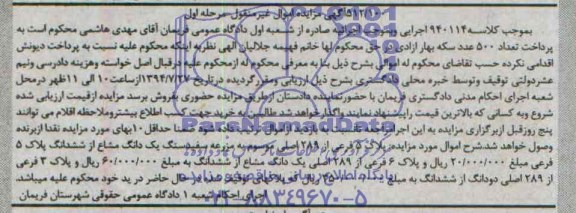 آگهی مزایده اموال غیر منقول مرحله اول
بموجب کلاسه ۹۴۰۱۱۴ اجرایی صادره از شعبه اول دادگاه عمومی فریمان آقای مهدی هاشمی محکوم است به
پرداخت تعداد ۵۰۰ عدد سکه بهار آزادی در حق محکوم لها خانم فهیمه جلالیان الهی نظر به اینکه محکوم علیه نسبت به پرداخت دیونش
اقدامی نکرده حسب تقاضای محکوم له اموالی بشرح ذیل بنا به معرفی محکوم له ازمحکوم علیه درقبال اصل خواسته وهزینه دادرسی ونیم
عشردولتی توقیف وتوسط خبره محلی دادگستری بشرح ذیل ارزیابی ومقرر گردیده درتاریخ ۱۳۹۴/۷/۲۷ ازساعت ۱۰ الی ۱۱ ظهر درمحل
شعبه اجرای احکام مدنی دادگستری فریمان با حضورنماینده دادستان ازطریق مزایده حضوری بفروش برسد مزایده ازقیمت ارزیابی شده
شروع وبه کسانی که بالاترین قیمت راپیشنهاد نمایند واگذارخواهد شد طالبین به خرید جهت کسب اطلاع بیشتروملاحظه اقلام می توانند
پنج روزقبل ازبرگزاری مزایده به این اجرا حداقل ۱۰٪بهای مورد مزایده نقدا ازبرنده
وصول خواهد شد.شرح اموال مورد مزایده: پلاک ۲۸۹ اصلی یک دانگ مشاع از ششدانگ پلاک ۵
فرعی مبلغ ۲۰/۰۰۰/۰۰۰ ریال و پلاک ۶ فرعی از ۲۸۹ اصلی یک دانگ مشاع از ششدانگ به مبلغ ۶۰/۰۰۰/۰۰۰ ریال و پلاک ۳ فرعی
از ۲۸۹ اصلی دودانگ از ششدانگ به مبلغ ریال در حال حاضر در ید خود محکوم علیه میباشد.
اجرای احکام شعبه ۱ دادگاه عمومی حقوقی شهرستان فریمان
ParsNamadData
۰۲۱-۸۸۳۴۹۶۷۰-۵